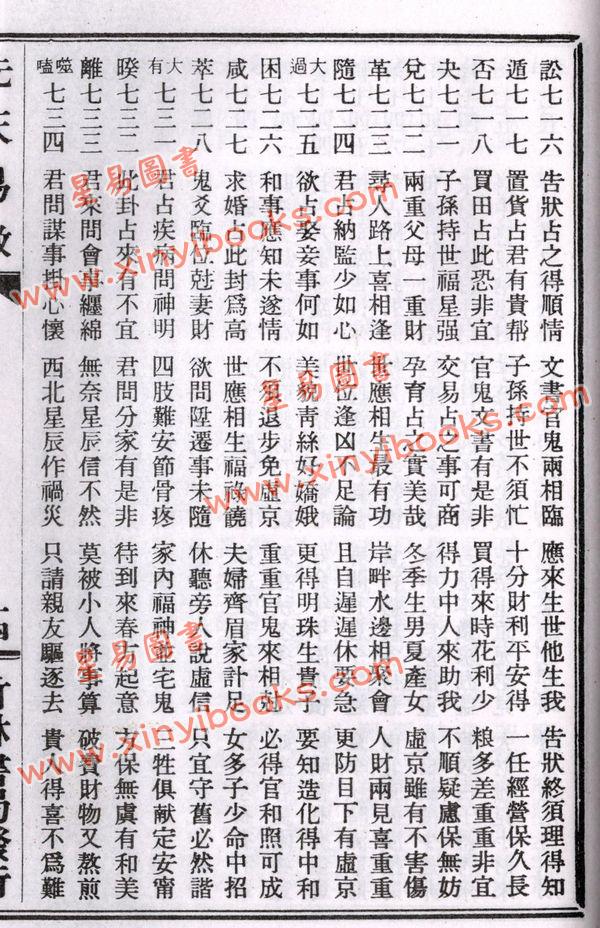 訟七一六 告狀占之得順情 文書官鬼兩相臨 應來生世他生我 告狀終須理得知
遁七一七 置貨占君有貴幇 子孫持世不須忙 十分財利平安得 一任經營保久長
否七一八 買田占此恐非宜 官鬼文書有是非 買得來時花利少 粮多差重重非宜
夬七二一 子孫持世福星强 交易占之事可商 得力中人來助我 不順疑慮保無妨
兌七二二 兩重父母一重財 孕育占之實美哉 冬季生男夏產女 虛京雖有不害傷
革七二三 尋人路上喜相逢 世應相生最有功 岸畔水邊相聚會 人財兩見喜重重
隨七二四 君占納監少如心 世位逢凶不足論 且自遲遲休要急 更防目下有虛京
大過七二五 欲占娶妾事何如 美貌靑絲好嬌娥 更得明珠生貴子 要知造化得中和
困七二六 和事應知未遂情 不須退步免虛京 重重官鬼來相尅 必得官和照可成
咸七二七 求婚占此封爲高 世應相生福祿饒 夫婦齊眉家計足 女多子少命中招
萃七二八 鬼爻臨位尅妻財 欲問陞遷事未隨 休聽旁人說虛信 只宜守舊必然諧
大有七三一 君占疾病問神明 四肢難安節骨疼 家內福神並宅鬼 三牲俱献定安甯
睽七三二 此卦占來有不宜 君問分家有是非 待到來春方起意 方保無虞有和美
離七三三 君來問會事纒綿 無奈星辰信不然 莫被小人將事算 破費財物又熬煎
噬嗑七三四 君問謀事掛心懷 西北星辰作禍災 只請親友驅逐去 貴人得喜不爲難
星易圖書
www.xinyibooks.com
星易圖書
www.xinyibooks.com
星易圖書
www.xinyibooks.com
星易圖書
www.xinyibooks.com